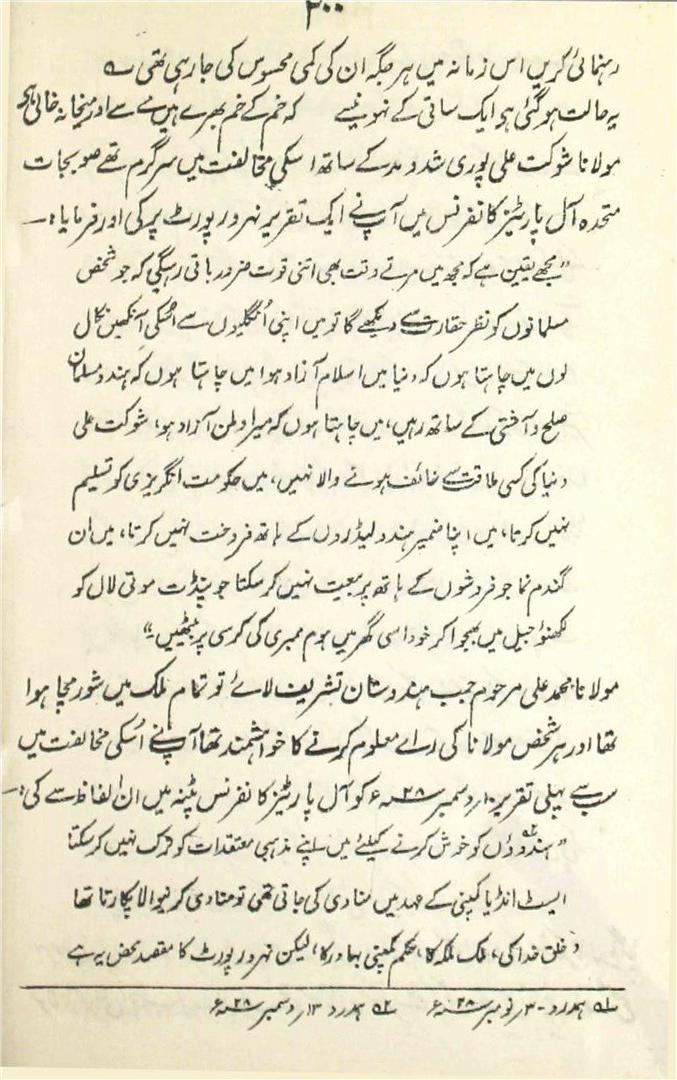 ۳۰۰
رہنمائی کریں اس زمانہ میں ہر جگہ ان کی کمی محسوس کی جا رہی تھی ؎
یہ حالت ہوگئی ہی ایک ساقی کے نہونیسے کہ خم کے خم بھرے ہیں مے سے اور میخانہ خالی ہی
مولانا شوکت علی پوری شد و مد کے ساتھ اسکی مخالفت میں سرگرم تھے صوبجات
متحدہ آل پارٹیز کانفرنس میں آپ نے ایک تقریر نہرو رپورٹ پر کی اور فرمایا:۔
"مجھے یقین ہے کہ مجھ میں مرتے وقت بھی اتنی قوت ضرور باقی رہیگی کہ جو شخص
مسلمانوں کو نظر حقارت سے دیکھے گا تو میں اپنی اُنگلیوں سے اُسکی آنکھیں نکال
لوں میں چاہتا ہوں کہ دنیا میں اسلام آزاد ہو، میں چاہتا ہوں کہ ہندو مسلمان
صلح و آشتی کے ساتھ رہیں، میں چاہتا ہوں کہ میرا وطن آزاد ہو، شوکت علی
دنیا کی کسی طاقت سے خائف ہونے والا نہیں، میں حکومت انگریزی کو تسلیم
نہیں کرتا، میں اپنا ضمیر ہندو لیڈروں کے ہاتھ فروخت نہیں کرتا، میں ان
گندم نما جو فروشوں کے ہاتھ پر بیعت نہیں کر سکتا جو پنڈت موتی لال کو
لکھنؤ جیل میں بھجوا کر خود اسی گھر میں ہوم ممبری کی کرسی پر بیٹھیں۔"
مولانا محمد علی مرحوم جب ہندوستان تشریف لائے تو تمام ملک میں شور مچا ہوا
تھا اور ہر شخص مولانا کی رائے معلوم کرنے کا خواہشمند تھا آپ نے اُسکی مخالفت میں
سب سے پہلی تقریر ۱۰ر دسمبر ۲۸ سنہ ء کو آل پارٹیز کانفرنس پٹنہ میں ان الفاظ سے کی:۔
"ہندوؤں کو خوش کرنے کیلئے میں اپنے مذہبی معتقدات کو ترک نہیں کر سکتا
ایسٹ انڈیا کمپنی کے عہد میں منادی کی جاتی تھی تو منادی کرنیوالا پکارتا تھا
'خلق خدا کی، ملک ملکہ کا، حکم کمپنی بہادر کا' لیکن نہرو رپورٹ کا مقصد محض یہ ہے
؎۱ ہمدرد ۳۰ر نومبر ۲۸ سنہ ء ؎۲ ہمدرد ۱۳ر دسمبر ۲۸ سنہ ء